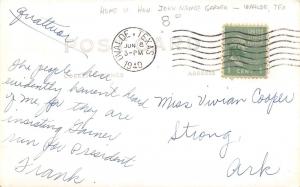 HOME OF HON JOHN NANCE GARNER - UVALDE, TEX
8⁰
Qualities
POST CARD
UVALDE, TEXAS
JUN 6
3-PM
1940
CORRESPONDENCE
ADDRESS
1 CENT 1
The people here
evidently haven't heard
of me for they are
insisting Garner
run for President
Frank.
Miss Vivian Cooper
Strong,
Ark